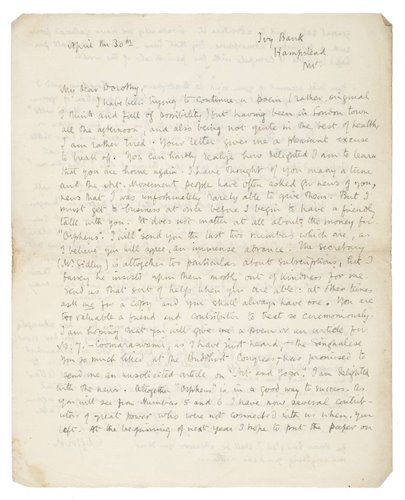 April the 30th
Ivy Bank
Hampstead
NW.
My dear Dorothy,
I have been trying to continue a poem (rather original
I think and full of possibility) but having been in London town
all the afternoon, and also being not quite in the best of health,
I am rather tired. Your letter gives me a pleasant excuse
to break off. You can hardly realize how delighted I am to learn
that you are home again. I have thought of you many a time
and the Art-Movement people have often asked for news of you,
news that I was unfortunately rarely able to give them. But I
must get to business at once before I begin to have a friendly
talk with you. It does not matter at all about the money for
"Orpheus". I will send you the last two numbers which are, as
I believe you will agree, an immense advance. The Secretary
(Mr Sidley) is altogether too particular about subscriptions, but I
fancy he insists upon them mostly out of kindness for me.
Send us that sort of help when you are able: at other times,
ask me for a copy and you shall always have one. You are
too valuable a friend and contributor to treat so ceremoniously.
I am hoping that you will give me a poem or an article for
No. 7, - Coomaraswamy, as I have just heard, - the Singhalese
you so much liked at the Buddhist Congress - has promised to
send me an unsolicited article on "Art and Yoga". I am delighted
with the news. Altogether "Orpheus" is in a good way to success. As
you will see from Numbers 5 and 6 I have now several contrib-
utors of great power who were not connected with us when you
left. At the beginning of next year I hope to put the paper on